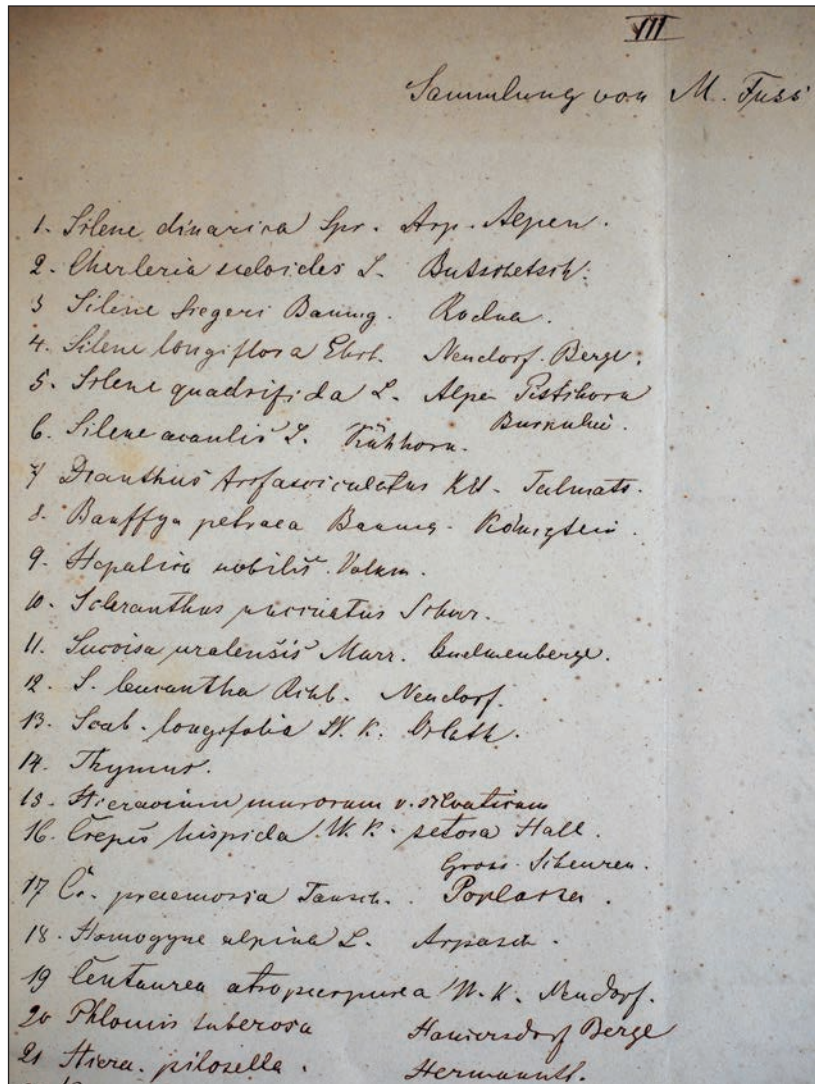 III
Sammlung von M. Fuss
1. Silene dinarica Spr. Arp. Alpen.
2. Cherleria sedoides L. Butschetsch.
3 Silene Siegeri Baumg. Rodna.
4. Silene longiflora Ehrh. Neudorf. Berge.
5. Silene quadrifida L. Alpe
6. Silene acaulis L. Kühhorn.
7 Dianthus KU. Talmats.
8. Banffya petraea Baumg. Königstein.
9. Hepatica nobilis. Volkm.
10. Scleranthus uncinatus Schur.
11. Succisa uralensis Murr.
12. S. leucantha Neudorf.
13. Scab. longifolia W. K. Orlath.
14. Thymus.
15. Hieracium murorum v. silvaticum
16. Crepis hispida W. K. setosa Hall.
Gross-Scheuren.
17 Cr. praemorsa Tausch. Poplaka.
18. Homogyne alpina L. Arpasch.
19 Centaurea atropurpurea W. K. Neudorf.
20 Phlomis tuberosa Hamersdorf Berge
21 Hiera. pilosella. Hermannst.